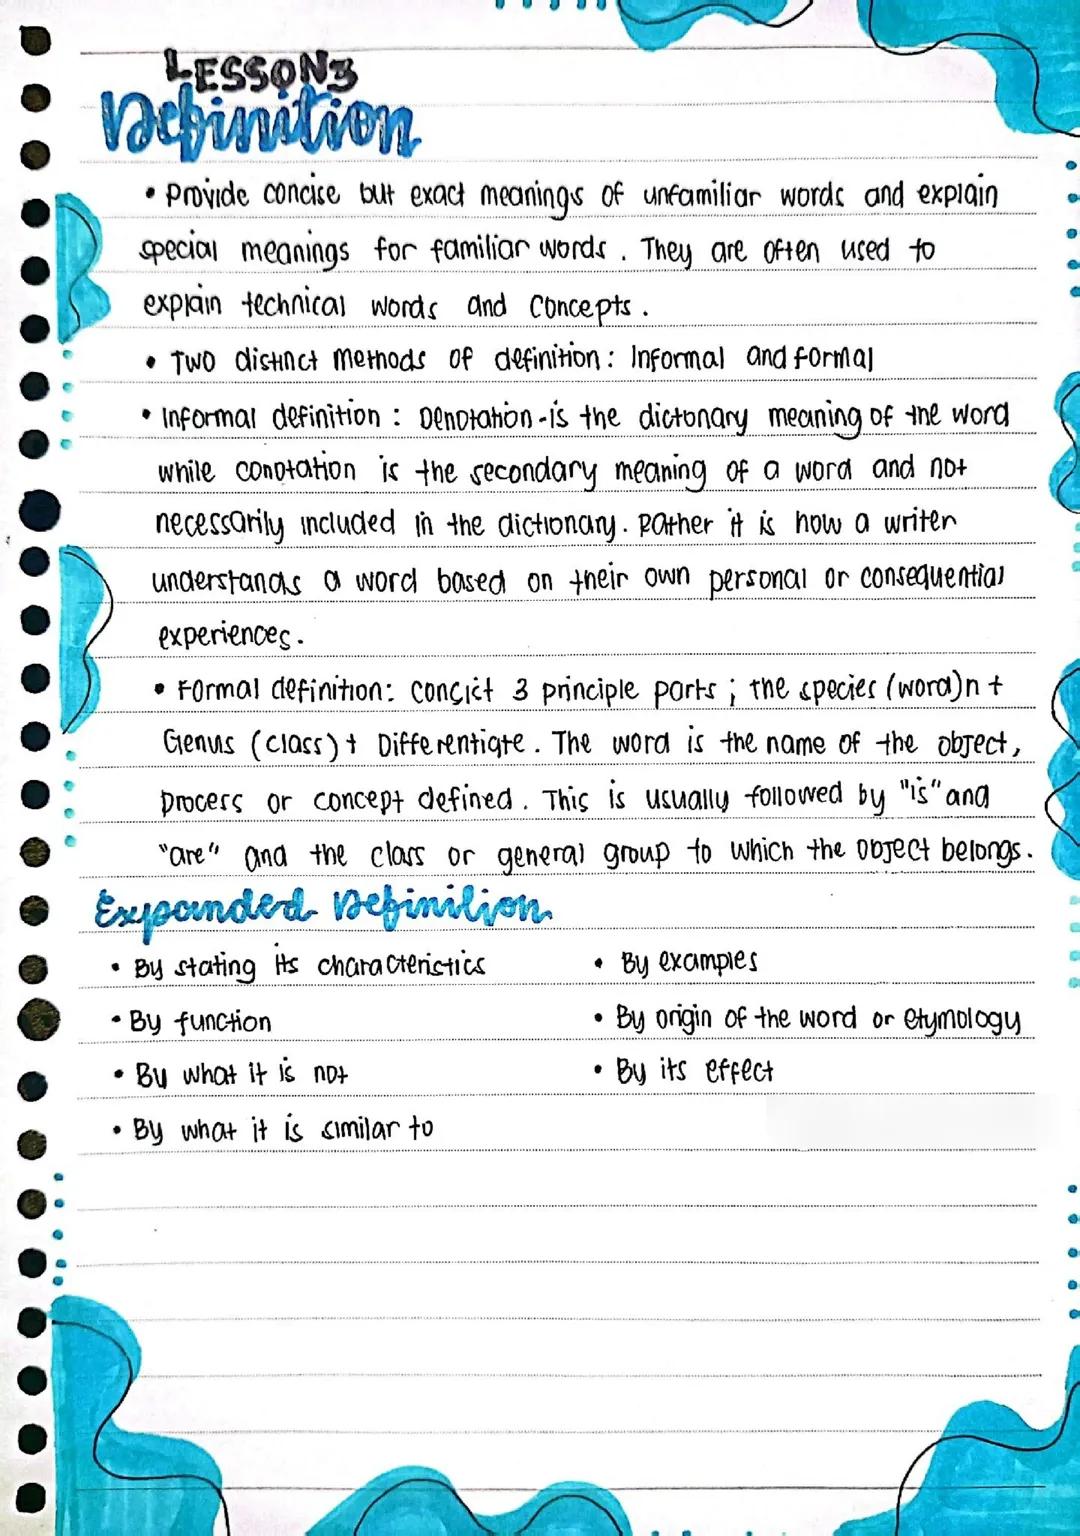 LESSON 3
Definition
• Provide concise but exact meanings of unfamiliar words and explain
special meanings for familiar words. They are often used to
explain technical words and concepts.
• Two distinct methods of definition: Informal and formal
• Informal definition: Denotation-is the dictonary meaning of the word
while conotation is the secondary meaning of a word and not
necessarily included in the dictionary. Rather it is how a writer
understands a word based on their own personal or consequential
experiences.
• Formal definition: concict 3 principle parts; the species (word)n +
Genus (class) + Differentiate. The word is the name of the object,
process or concept defined. This is usually followed by "is" and
"are" and the class or general group to which the object belongs.
Expanded Definition
• By stating its characteristics
• By function
• By what it is not
• By what it is similar to
• By examples
• By origin of the word or etymology
• By its effect